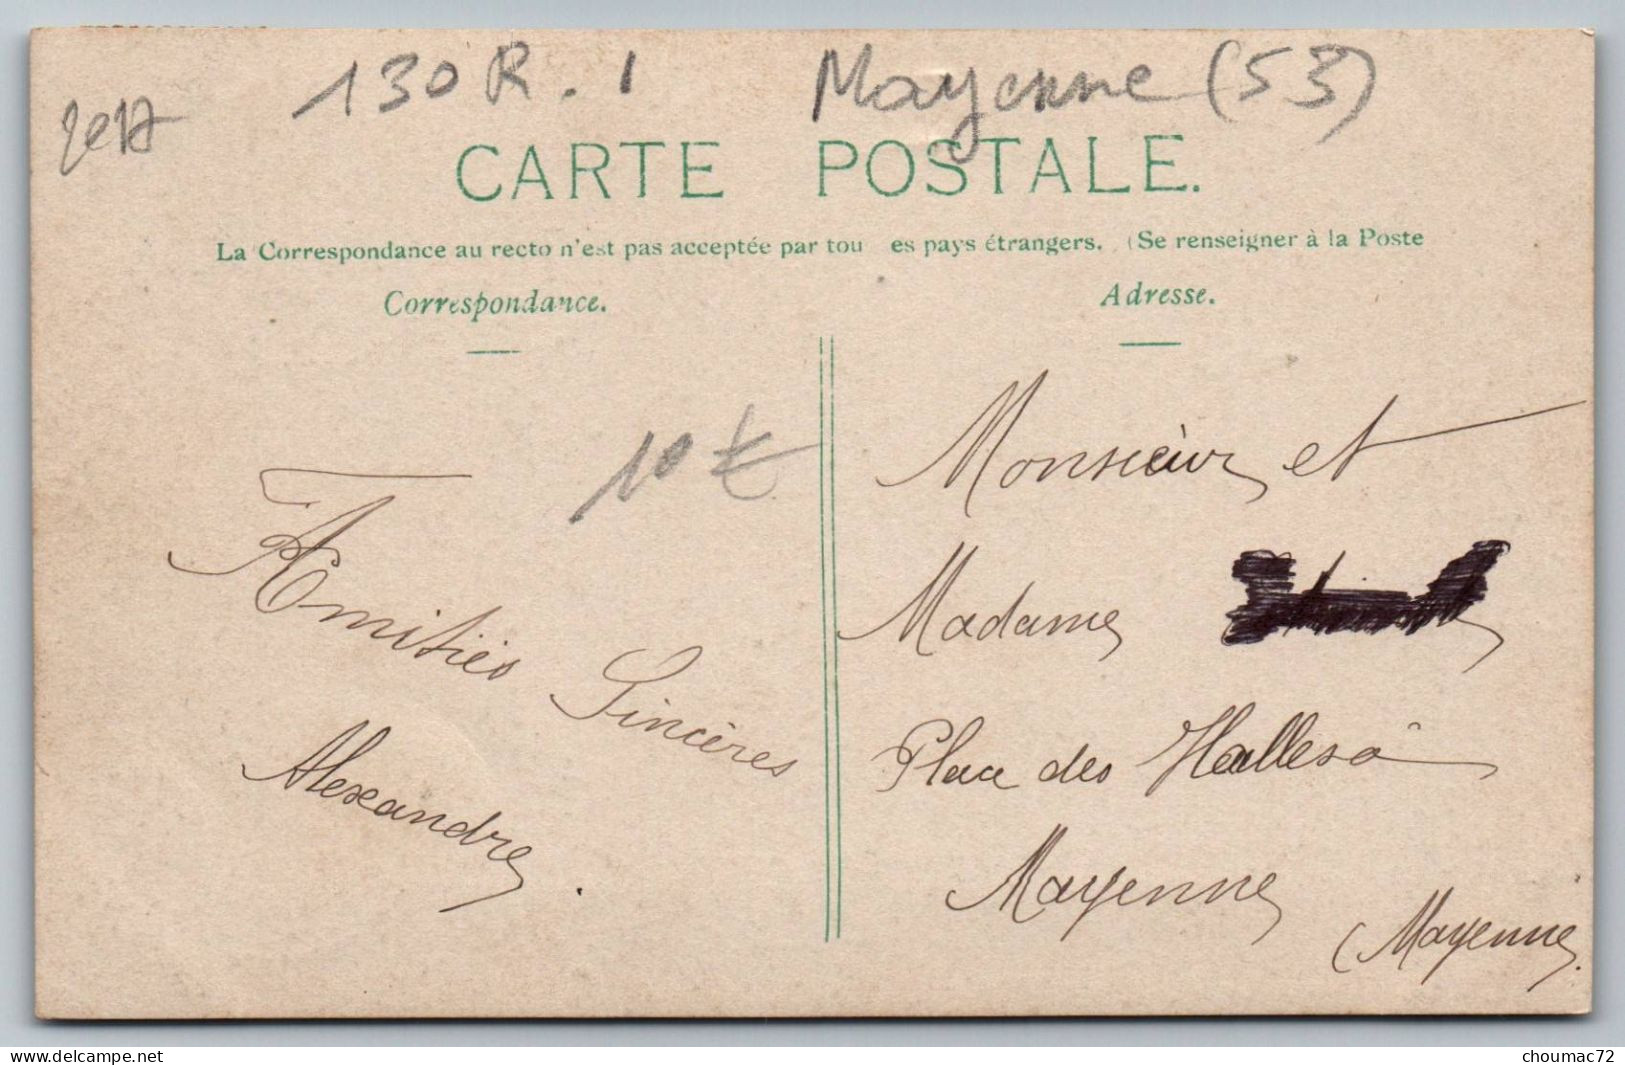 130 R. I Mayenne (53)
CARTE POSTALE.
La Correspondance au recto n'est pas acceptée par tou es pays étrangers. (Se renseigner à la Poste
Correspondance.
Adresse.
10 €
Amitiés Sincères
Alexandre.
Monsieur et
Madame
Place des Halles à
Mayenne
(Mayenne.
delcampe.net
choumac72